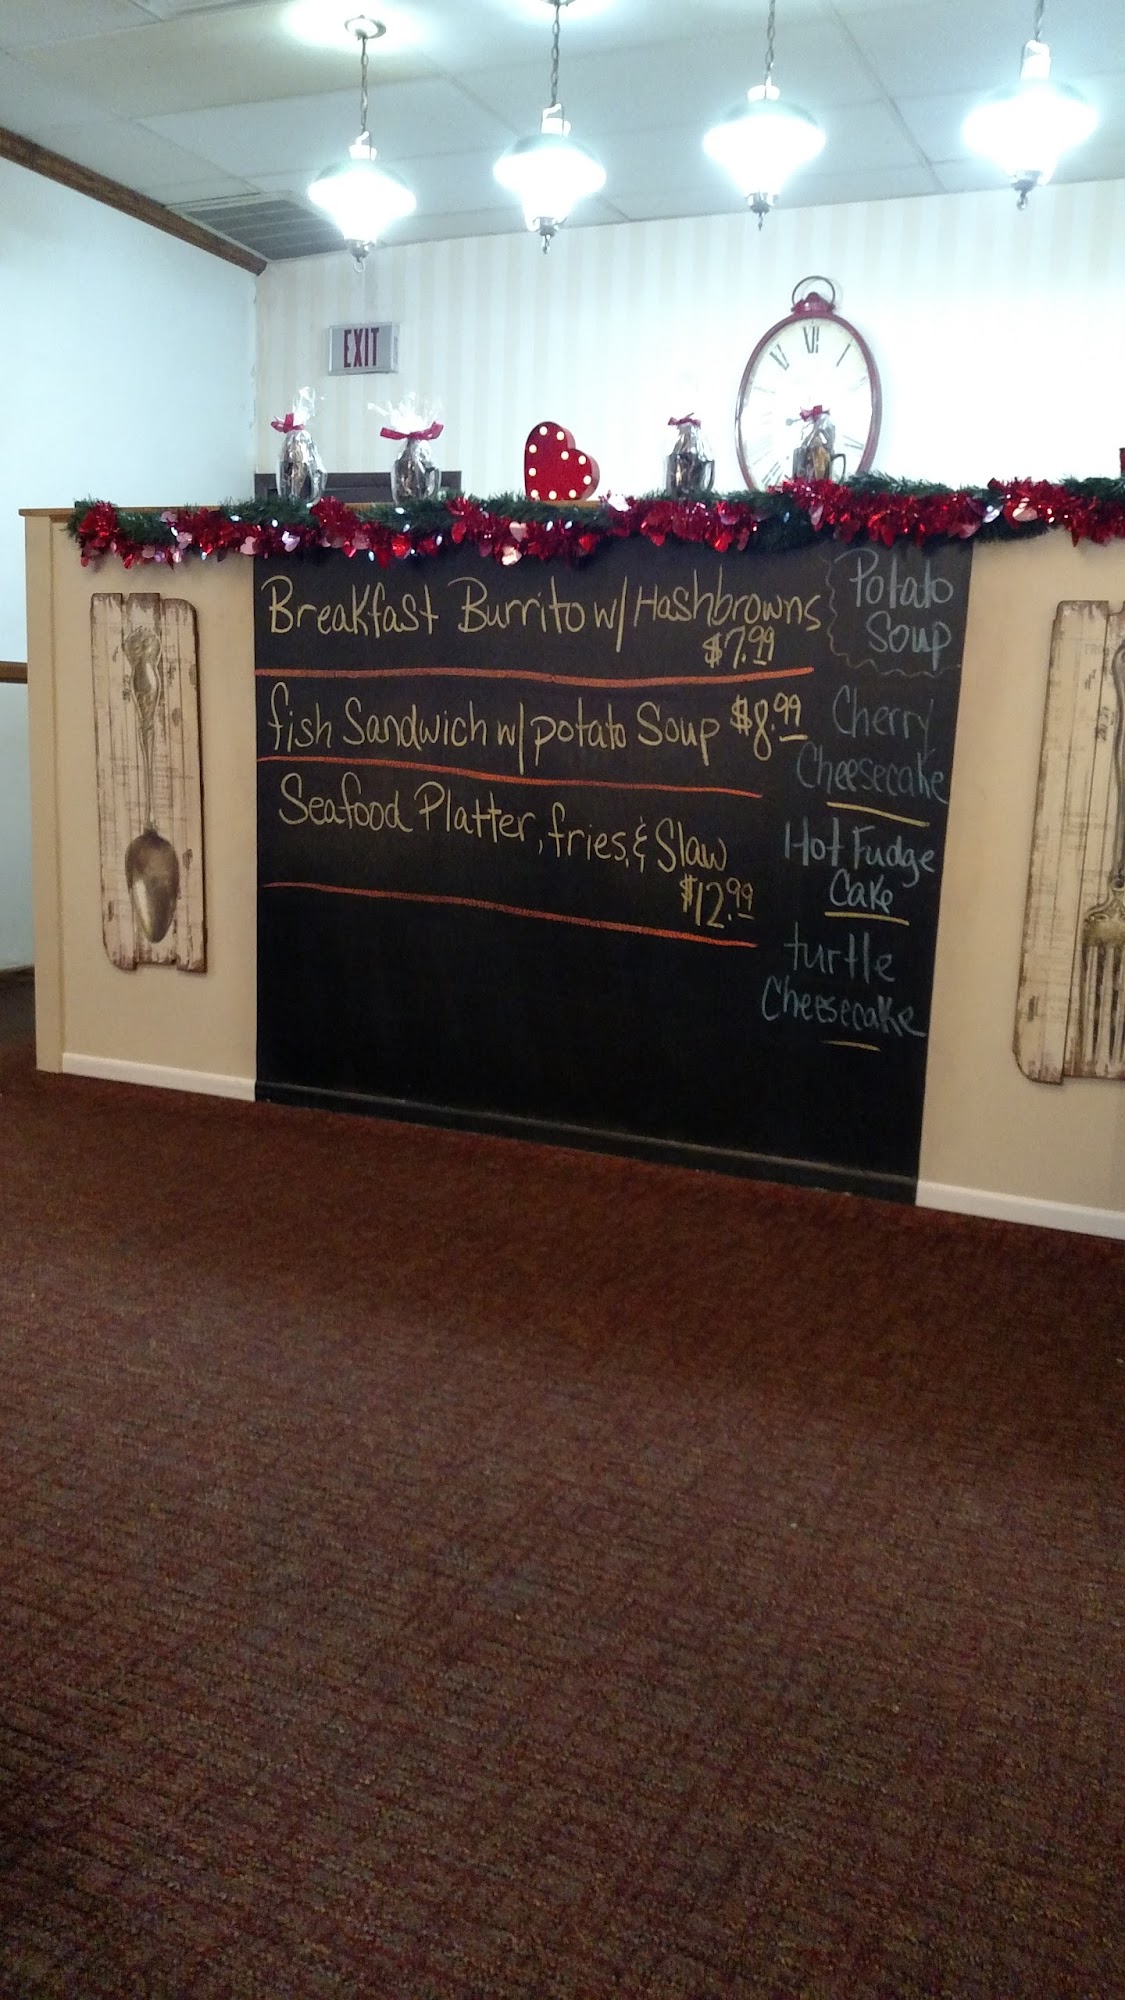 EXIT
Breakfast Burrito w/ Hashbrowns
$7.99
fish Sandwich w/ potato Soup $8.99
Seafood Platter, fries, & Slaw
$12.99
Potato
Soup
Cherry
Cheesecake
Hot Fudge
Cake
turtle
Cheesecake